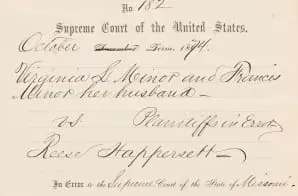 No. 182
Supreme Court of the United States.
October December Term, 1874.
Virginia L Minor and Francis
Minor her husband —
vs. Plaintiffs in Error
Reese Happersett —
In Error to the Supreme Court of the State of Missouri.